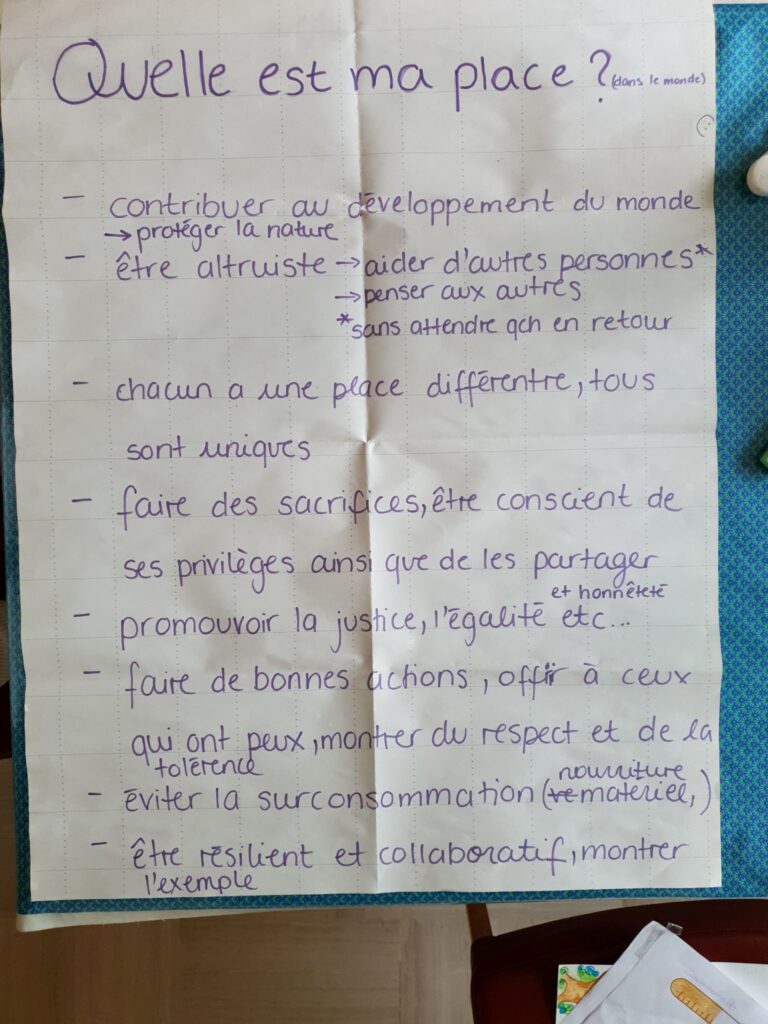 Quelle est ma place ? (dans le monde)
- contribuer au développement du monde
→ protéger la nature
- être altruiste → aider d'autres personnes*
→ penser aux autres
*sans attendre qch en retour
- chacun a une place différentre, tous
sont uniques
- faire des sacrifices, être conscient de
ses privilèges ainsi que de les partager
et honnêteté
- promouvoir la justice, l'égalité etc...
- faire de bonnes actions, offrir à ceux
qui ont peux, montrer du respect et de la
tolérence
nourriture
- éviter la surconsommation (matériel,)
- être résilient et collaboratif, montrer
l'exemple